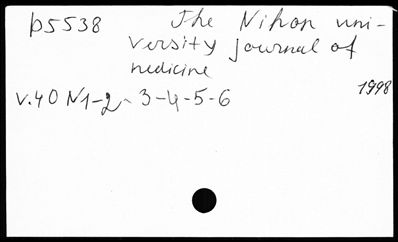 p5538 The Nihon uni-
versity journal of
medicine
v.40 N1-2-3-4-5-6 1998